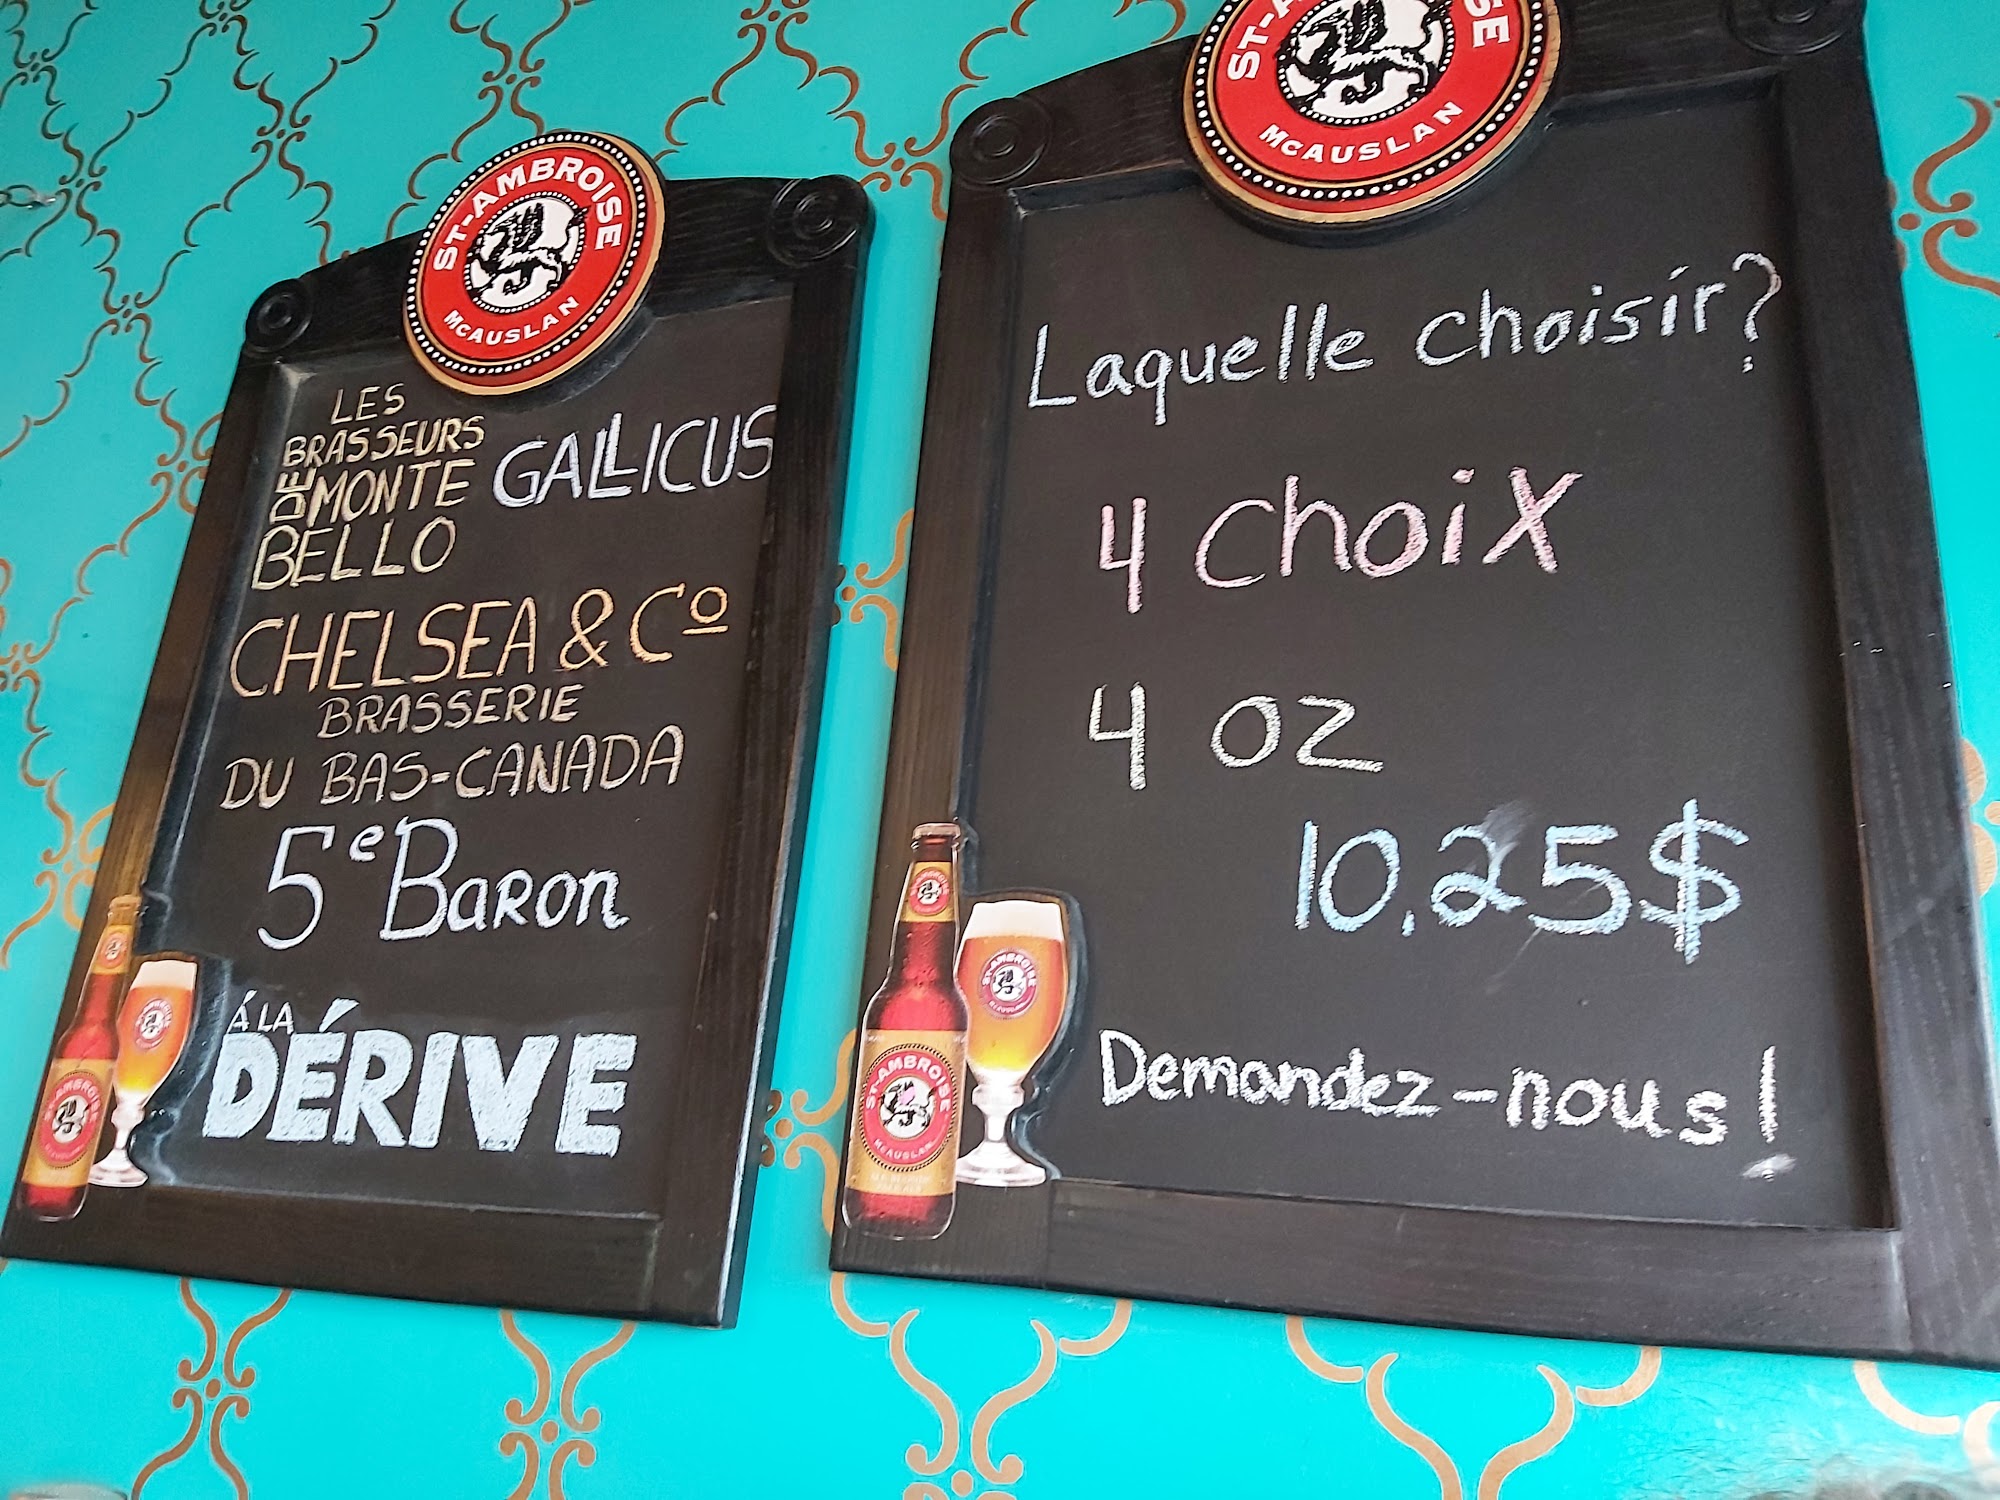 ST-AMBROISE
McAUSLAN
LES
BRASSEURS
DE MONTE
BELLO
GALLICUS
CHELSEA & Cº
BRASSERIE
DU BAS-CANADA
5e BARON
À LA
DÉRIVE
ST-AMBROISE
McAUSLAN
Laquelle choisir?
4 choix
4 oz
10,25$
Demandez-nous!
ST-AMBROISE
McAUSLAN